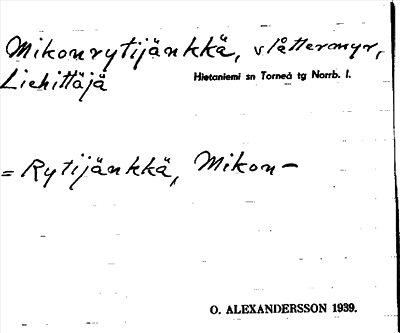 Mikonrytijänkkä, slåttermyr,
Liehittäjä
Hietaniemi sn Torneå tg Norrb. l.
= Rytijänkkä, Mikon-
O. ALEXANDERSSON 1939.